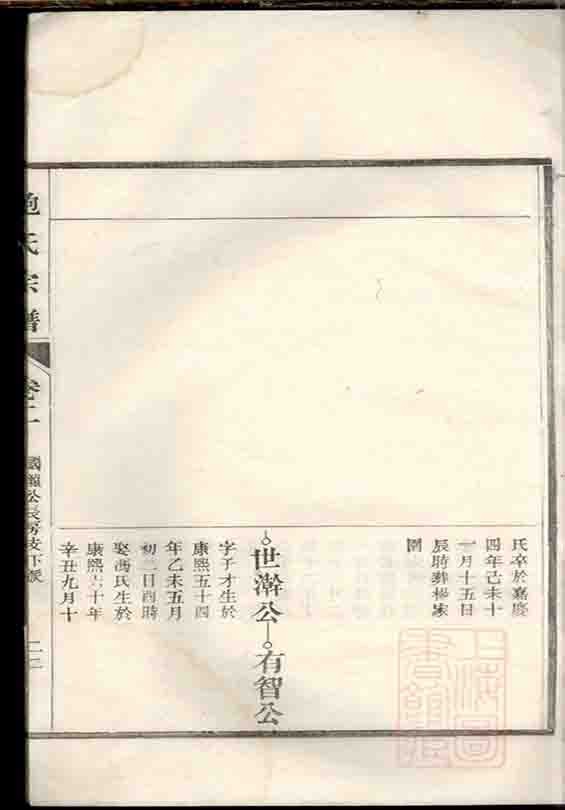 氏卒於嘉慶
四年己未十
一月十五日
辰時葬楊家
世濣公 有智公
字子才生於
康熙五十四
年乙未五月
初二日酉時
娶馮氏生於
康熙六十年
辛丑九月十
氏宗譜
卷二
國公長房支下派
上海圖書館藏